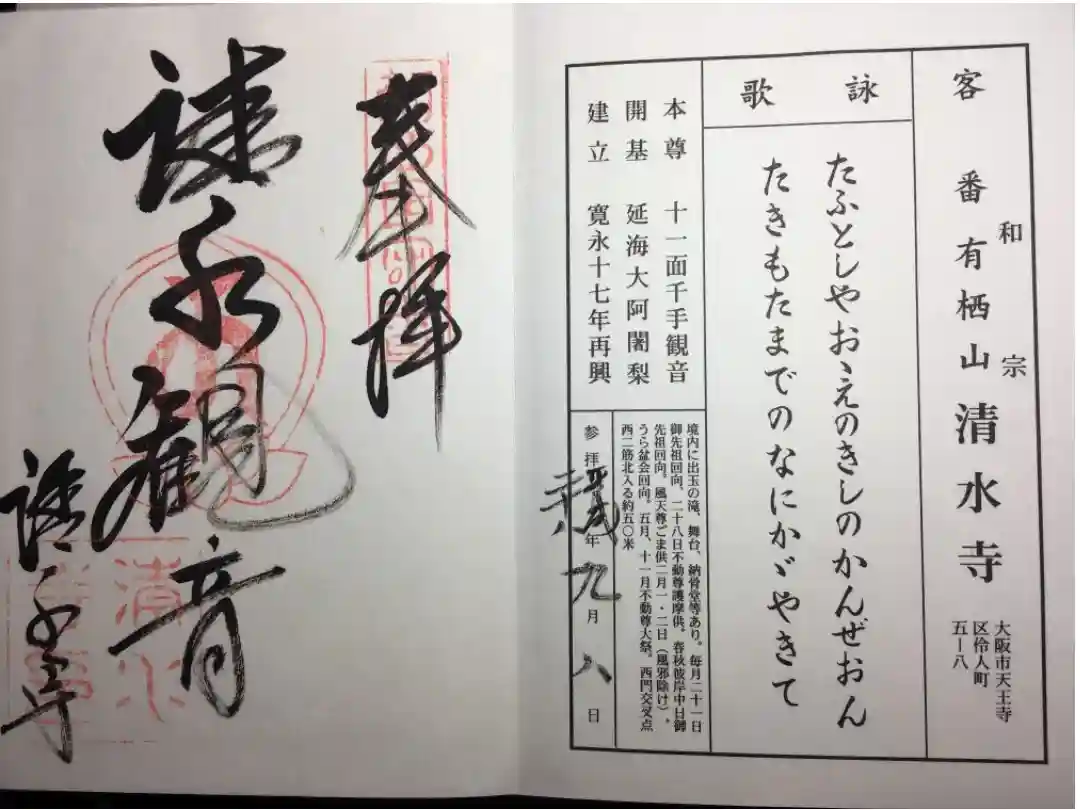 客番
和宗
有栖山清水寺
大阪市天王寺
区伶人町
五ー八
詠歌
たふとしやおゝえのきしのかんぜおん
たきもたまでのなにかゞやきて
本尊 十一面千手観音
開基 延海大阿闍梨
建立 寛永十七年再興
境内に出玉の滝、舞台、納骨堂等あり。毎月二十一日
御先祖回向、二十八日不動尊護摩供。春秋彼岸中日御
先祖回向。風天尊ごま供二月一・二日（風邪除け）。
うら盆会回向。五月、十一月不動尊大祭。西門交叉点
西二筋北入る約五〇米
参拝 年九月八日
奉拝
清水観音
清水寺
清水